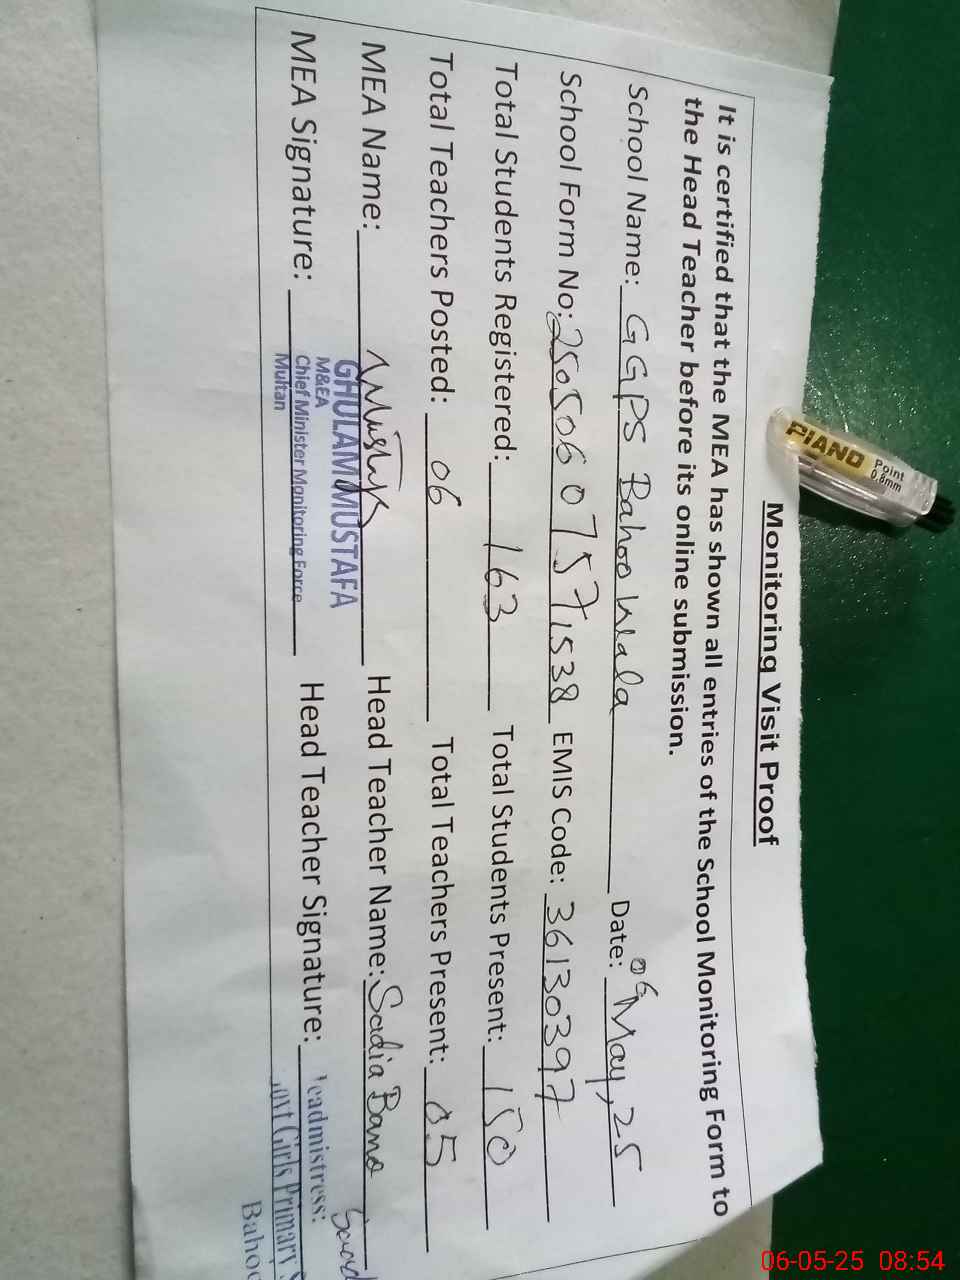 Monitoring Visit Proof
It is certified that the MEA has shown all entries of the School Monitoring Form to
the Head Teacher before its online submission.
School Name: GGPS Bahoo Wala Date: 06 May, 25
School Form No: 250506 0757,538 EMIS Code: 36130397
Total Students Registered: 163 Total Students Present: 150
Total Teachers Posted: 06 Total Teachers Present: 05
MEA Name: Head Teacher Name: Sadia Bano
GHULAM MUSTAFA
M&EA
MEA Signature: Head Teacher Signature:
Chief Minister Monitoring Force
Multan
eadmistress:
ovt Girls Primary S
Bahoo
PIANO
Point
0.8mm
06-05-25 08:54